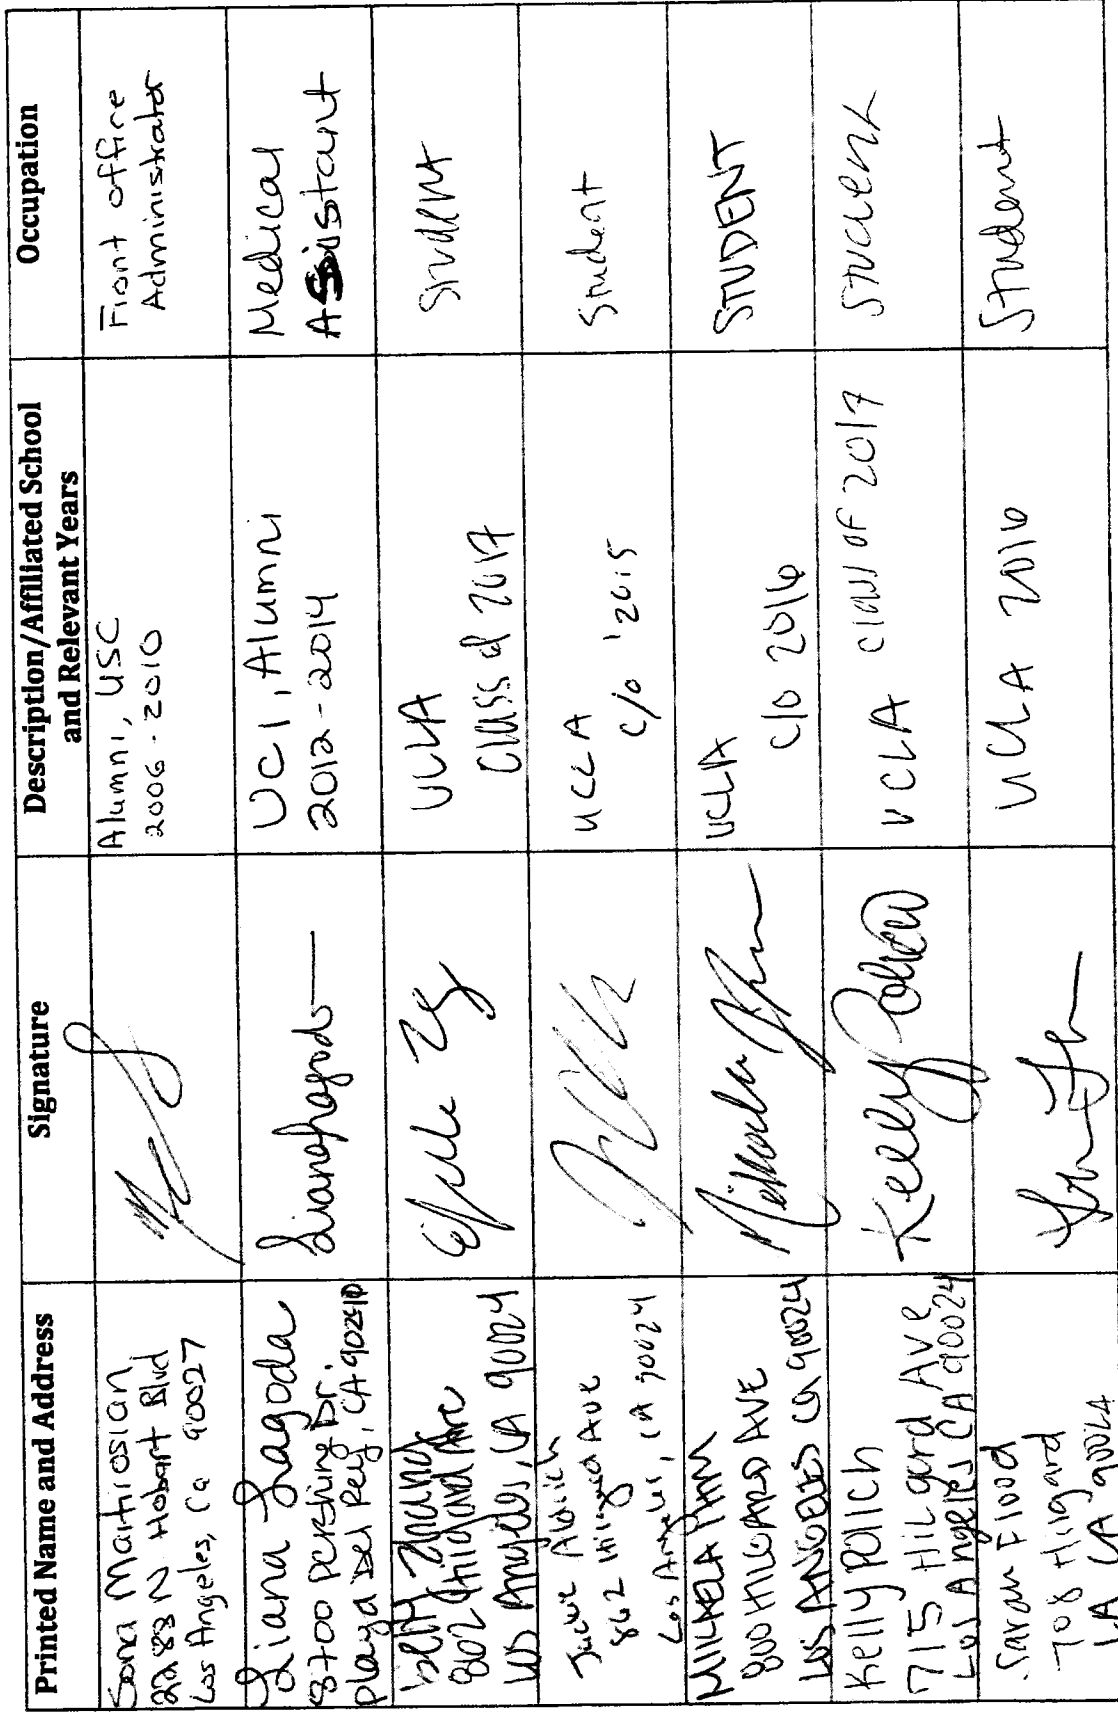 Printed Name and Address
Signature
Description/Affiliated School
and Relevant Years
Occupation
Sona Martirosian
2283 N Hobart Blvd
Los Angeles, Ca 90027
Alumni, USC
2006-2010
Front office
Administrator
Liana Lagoda
8700 Pershing Dr.
Playa Del Rey, CA
UCI, Alumni
2012-2014
Medical
Assistant
802 Hilgard Ave
Los Angeles, CA 90024
UCLA
Class of 2017
Student
Jackie Aldrich
862 Hilgard Ave
Los Angeles, CA 90024
UCLA
c/o '2015
Student
800 HILGARD AVE
LOS ANGELES CA 90024
UCLA
c/o 2016
STUDENT
Kelly POLICH
715 Hilgard Ave
Los Angeles CA 90024
Kelly Polich
UCLA class of 2017
Student
Sarah Flood
708 Hilgard
LA CA 90024
UCLA 2016
Student